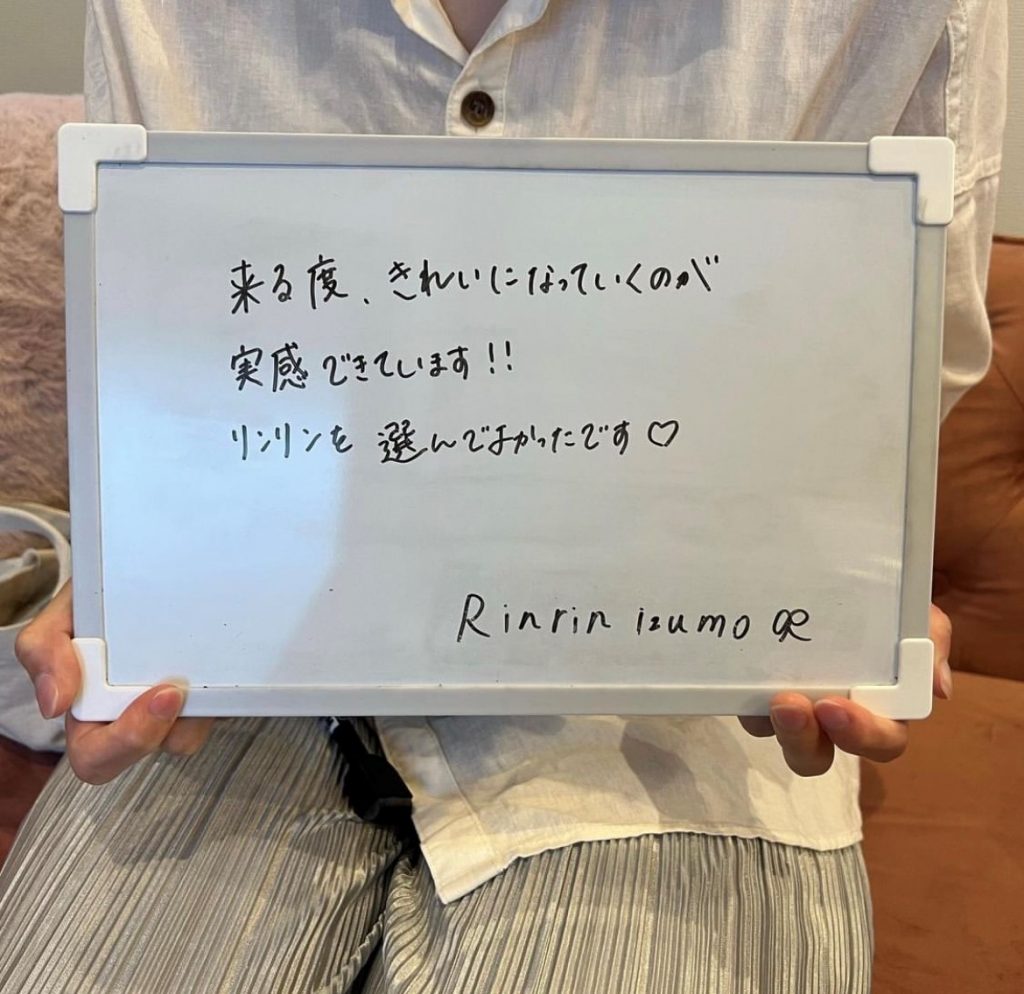 来る度、きれいになっていくのが
実感できています!!
リンリンを 選んでよかったです♡
Rinrin izumo